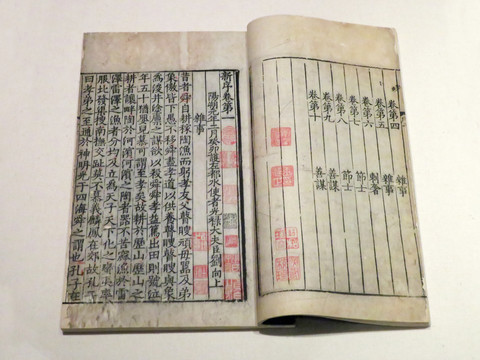 卷第四 雜事
卷第五 雜事
卷第六 刺奢
卷第七 節士
卷第八 節士
卷第九 善謀
卷第十 善謀
新序卷第一
雜事
陽朔元年二月癸卯護左都水使者光祿大夫臣劉向上
昔者舜自耕稼陶漁而躬孝友父瞽瞍頑母嚚及弟
象傲皆下愚不移舜盡孝道以供養瞽瞍瞽瞍與象
為浚井塗廩之謀欲以殺舜舜孝益篤出田則號泣
年五十猶嬰兒慕可謂至孝矣故耕於歷山歷山之
耕者讓畔陶於河濱河濱之陶者器不苦窳漁於雷
澤雷澤之漁者分均及立為天子天下化之蠻夷率
服北發渠搜南撫交阯莫不慕義麟鳳在郊故孔子
曰孝弟之至通於神明光于四海舜之謂也孔子在